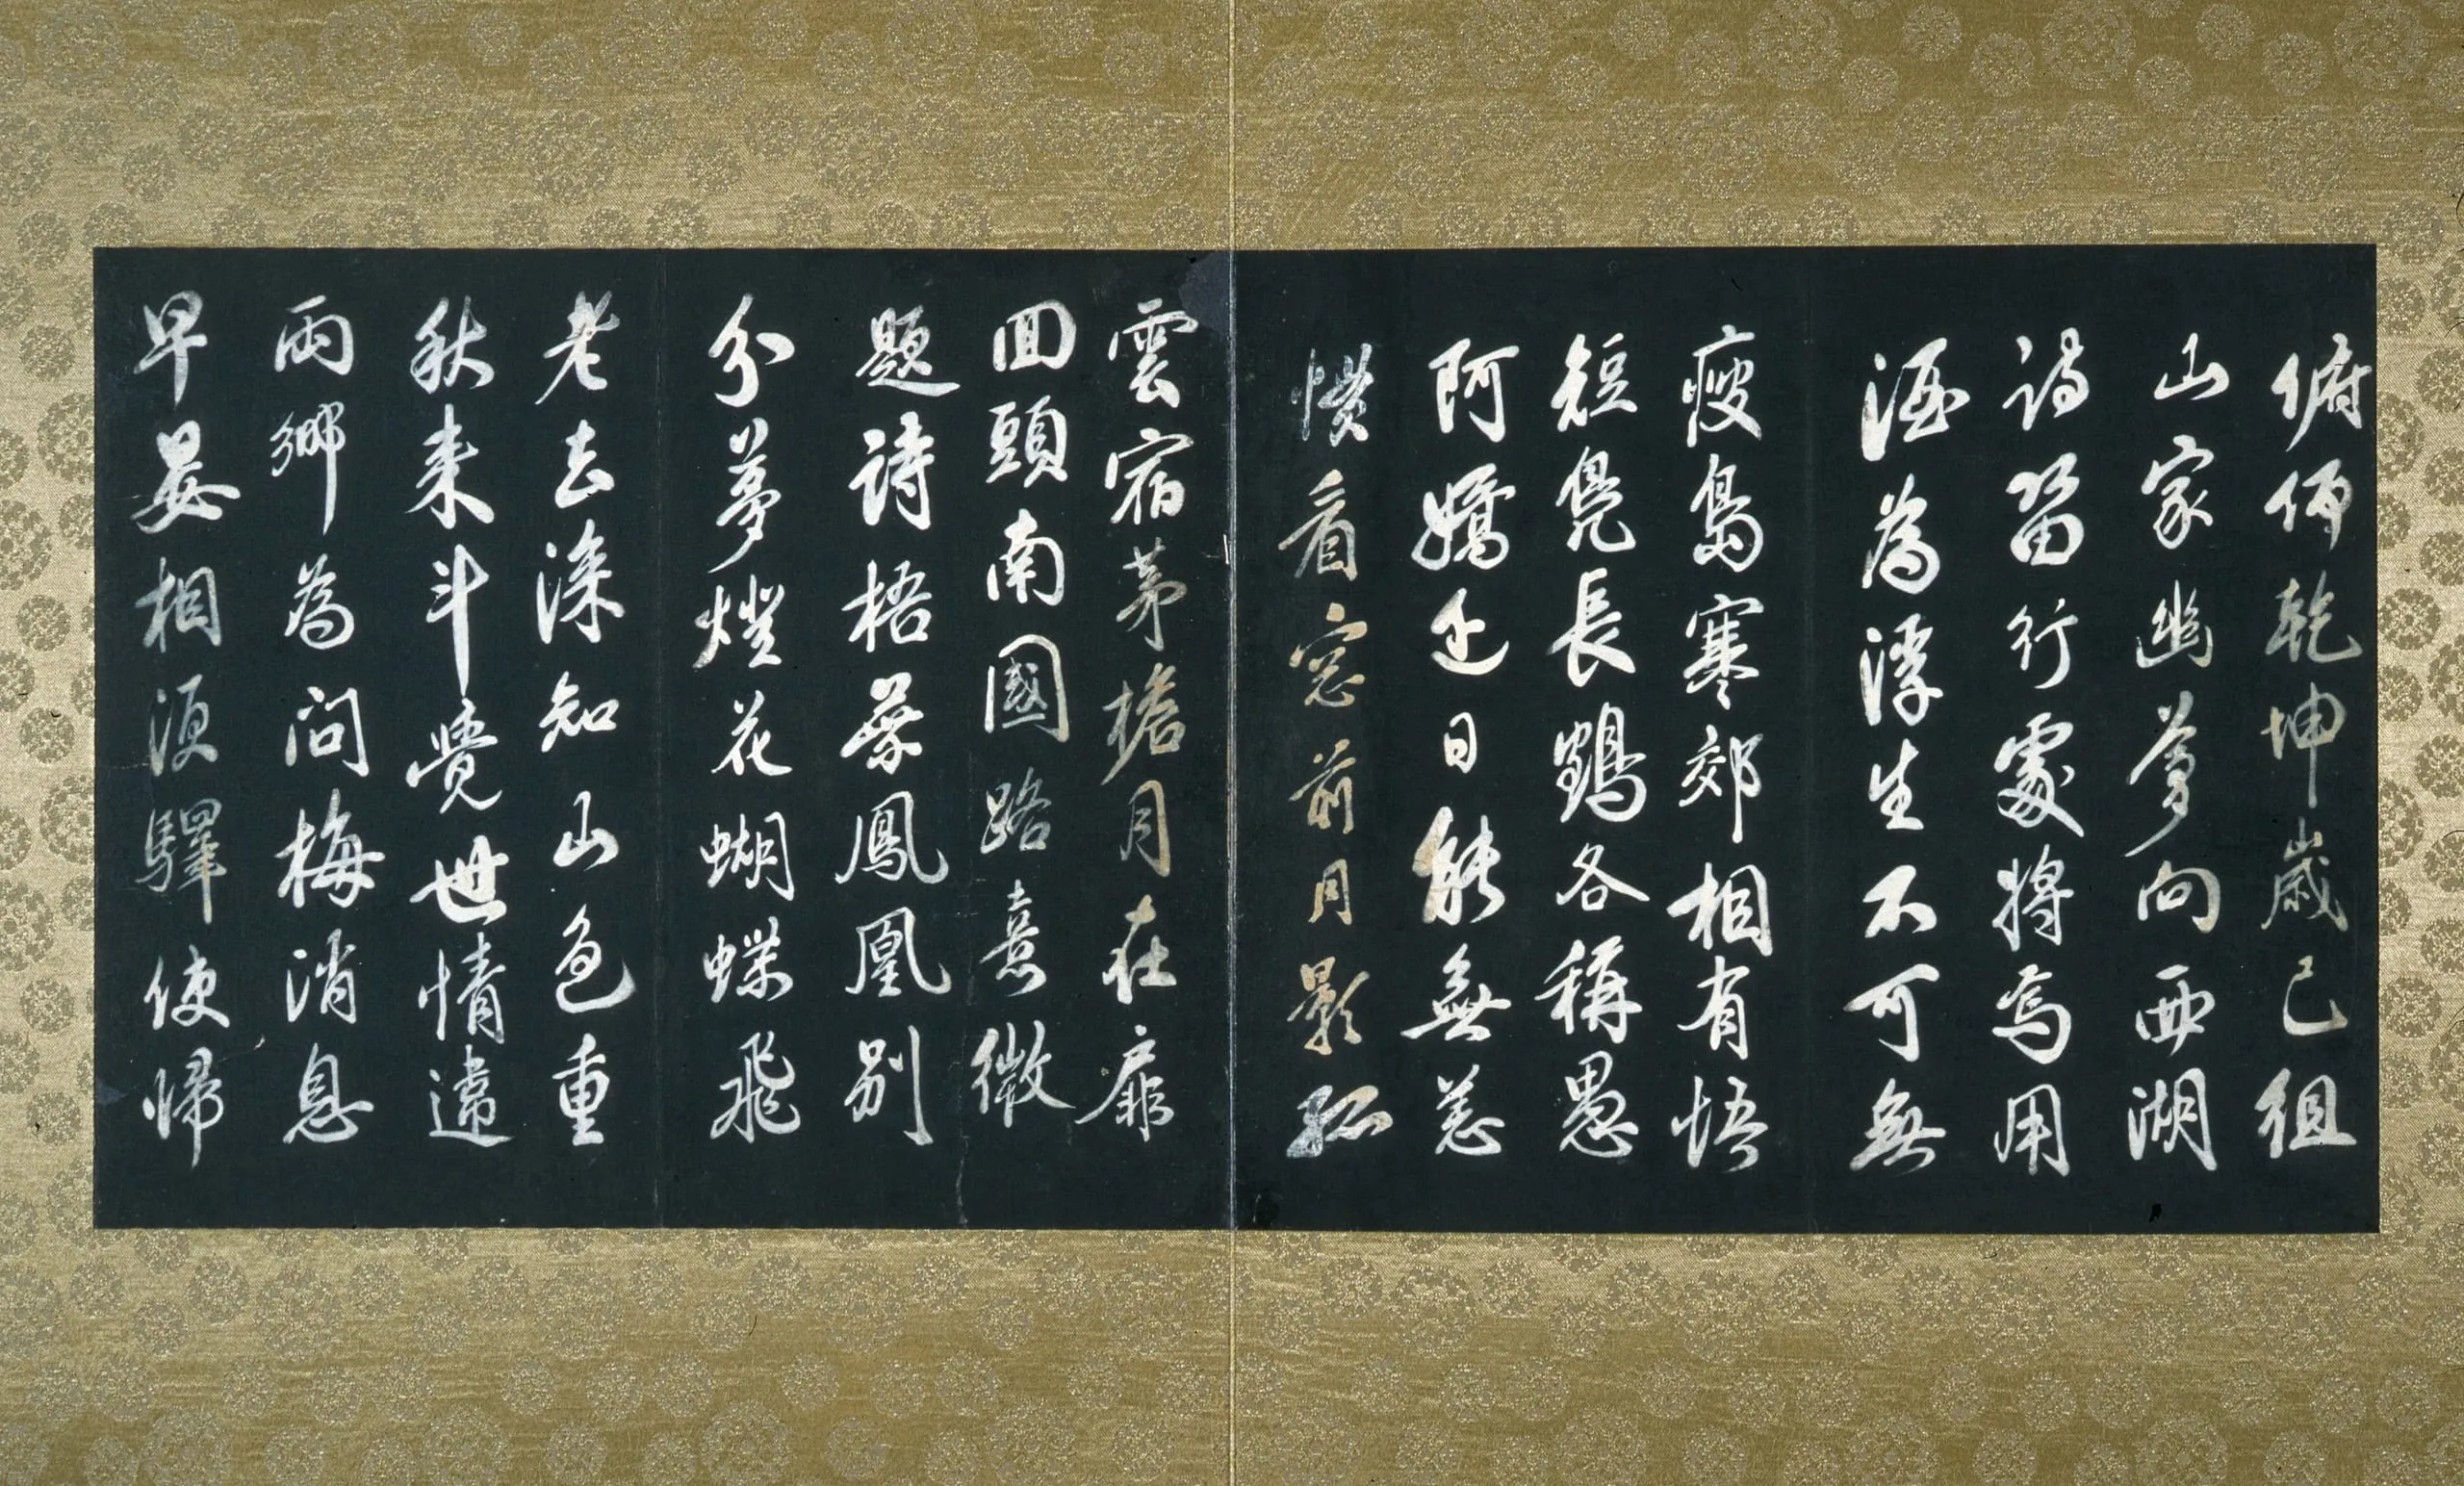 俯俛乾坤歲已徂
山家幽夢向西湖
詩留行處將焉用
酒為浮生不可無
瘦島寒郊相有悟
短鳧長鶴各稱愚
阿嬌近日能無恙
慣看窓前月影孤
雲宿茅檐月在扉
回頭南國路熹微
題詩梧葉鳳凰別
分夢燈花蝴蝶飛
老去深知山色重
秋來斗覺世情違
兩鄉為問梅消息
早晏相須驛使歸